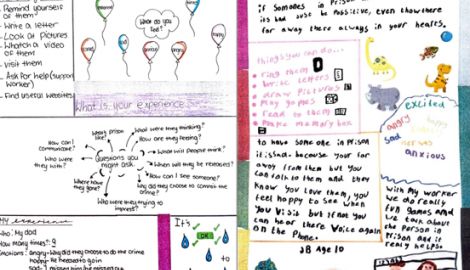 - Remind yourself of them
- Write a letter
- Look at pictures
- Watch a video of them
- Visit them
- Ask for help (support worker)
- Find useful websites
What do you feel?
sad
angry
What is your experience
What's prison like?
What were they thinking?
How are they feeling?
What will people think?
When will they be released?
How can I see someone?
Why did they choose to commit the crime?
What were they trying to
Where have they gone?
Who were they with?
How can I communicate?
Questions you might ask
My experience
Who: My dad
How many times: 9
Emotions: angry - Why did they choose to do the crime
happy - he needed to gain
It's
OK
if someones in Prison
its bad just be Possitive, even thow there
far away there always in your hearts.
things you can do...
• ring them
• write letters
• draw pictures
• Play games
• read to them
• make memory box
excited
angry
happy
sad
nervous
anxious
to have some one in Prison
it is sad because your far
away from them but you
can talk to them and they
know you Love them, you
feel happy to see when
you Visit but if not you
can hear there Voice again
on the Phone.
JB Age 10
With My worker
we do really
fun games and
we talk about
the Person in
Prison and it
really helps.